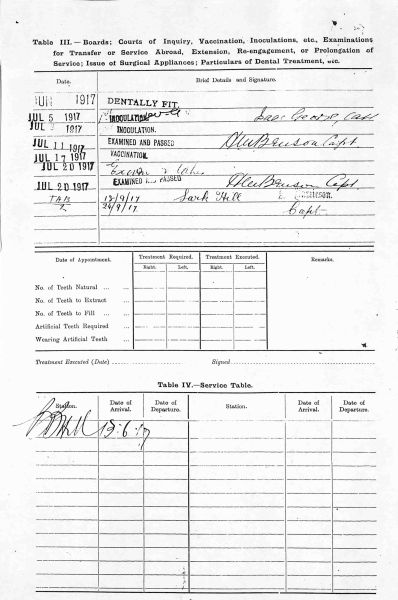 Table III.—Boards; Courts of Inquiry, Vaccination, Inoculations, etc., Examinations
for Transfer or Service Abroad, Extension, Re-engagement, or Prolongation of
Service; Issue of Surgical Appliances; Particulars of Dental Treatment, etc.
Date. Brief Details and Signature.
JUN 1917 DENTALLY FIT.
JUL 5 1917 INOCULATION Capt
JUL 1917 INOCULATION.
JUL 11 1917 EXAMINED AND PASSED Benson Capt
JUL 17 1917 VACCINATION.
JUL 20 1917
JUL 20 1917 EXAMINED AND PASSED Benson Capt.
TAB 12/9/17 Lark Hill
2 26/9/17 Capt
Date of Appointment. Treatment Required. Treatment Executed. Remarks.
Right. Left. Right. Left.
No. of Teeth Natural ... ...
No. of Teeth to Extract ...
No. of Teeth to Fill ... ...
Artificial Teeth Required ...
Wearing Artificial Teeth ...
Treatment Executed (Date) Signed
Table IV.—Service Table.
Station. Date of Arrival. Date of Departure. Station. Date of Arrival. Date of Departure.
13.6.17